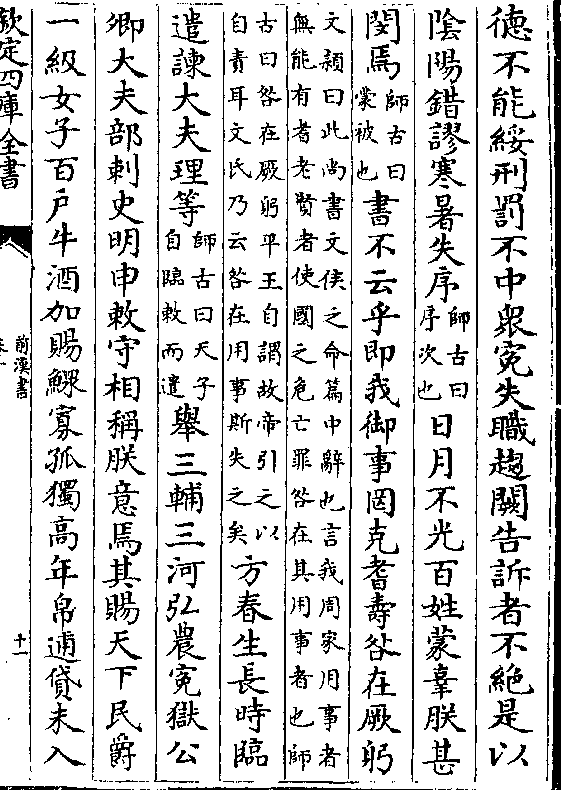 德不能綏刑罰不中衆寃失職趨闕告訴者不絶是以
陰陽錯謬寒暑失序師古曰序次也日月不光百姓蒙辜朕甚
閔焉師古曰蒙被也書不云乎即我御事罔克耆壽咎在厥躬
文頴曰此尚書文侯之命篇中辭也言我周家用事者
無能有耆老賢者使國之危亡罪咎在其用事者也師
古曰咎在厥躬平王自謂故帝引之以
自責耳文氏乃云咎在用事斯失之矣方春生長時臨
遣諫大夫理等師古曰天子自臨敕而遣舉三輔三河弘農寃獄公
卿大夫部刺史明申敕守相稱朕意焉其賜天下民爵
一級女子百戶牛酒加賜鰥寡孤獨高年帛逋貸未入
欽定四庫全書
前漢書
十一